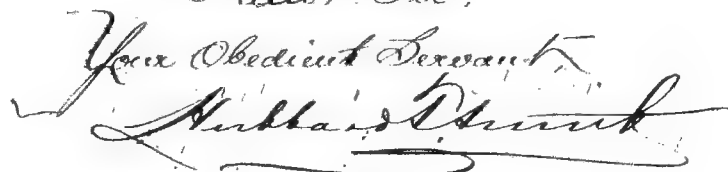 Your Obedient Servant,
Hubbard T. Smith